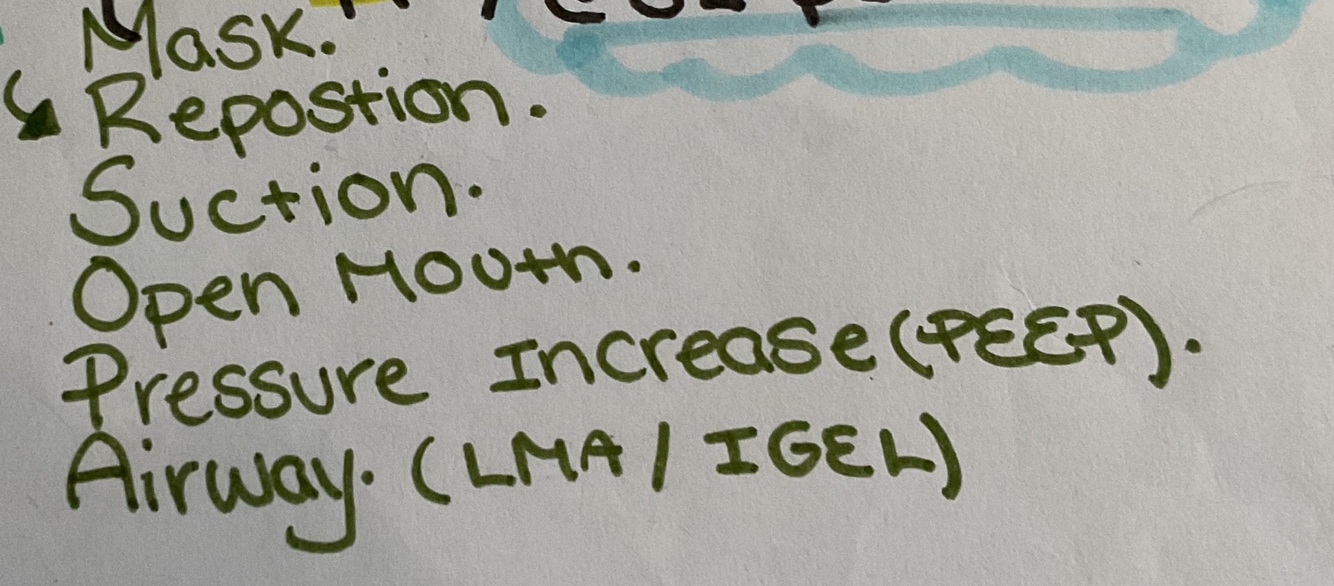 Mask.
Repostion.
Suction.
Open Mouth.
Pressure Increase (PEEP).
Airway. (LMA / IGEL)